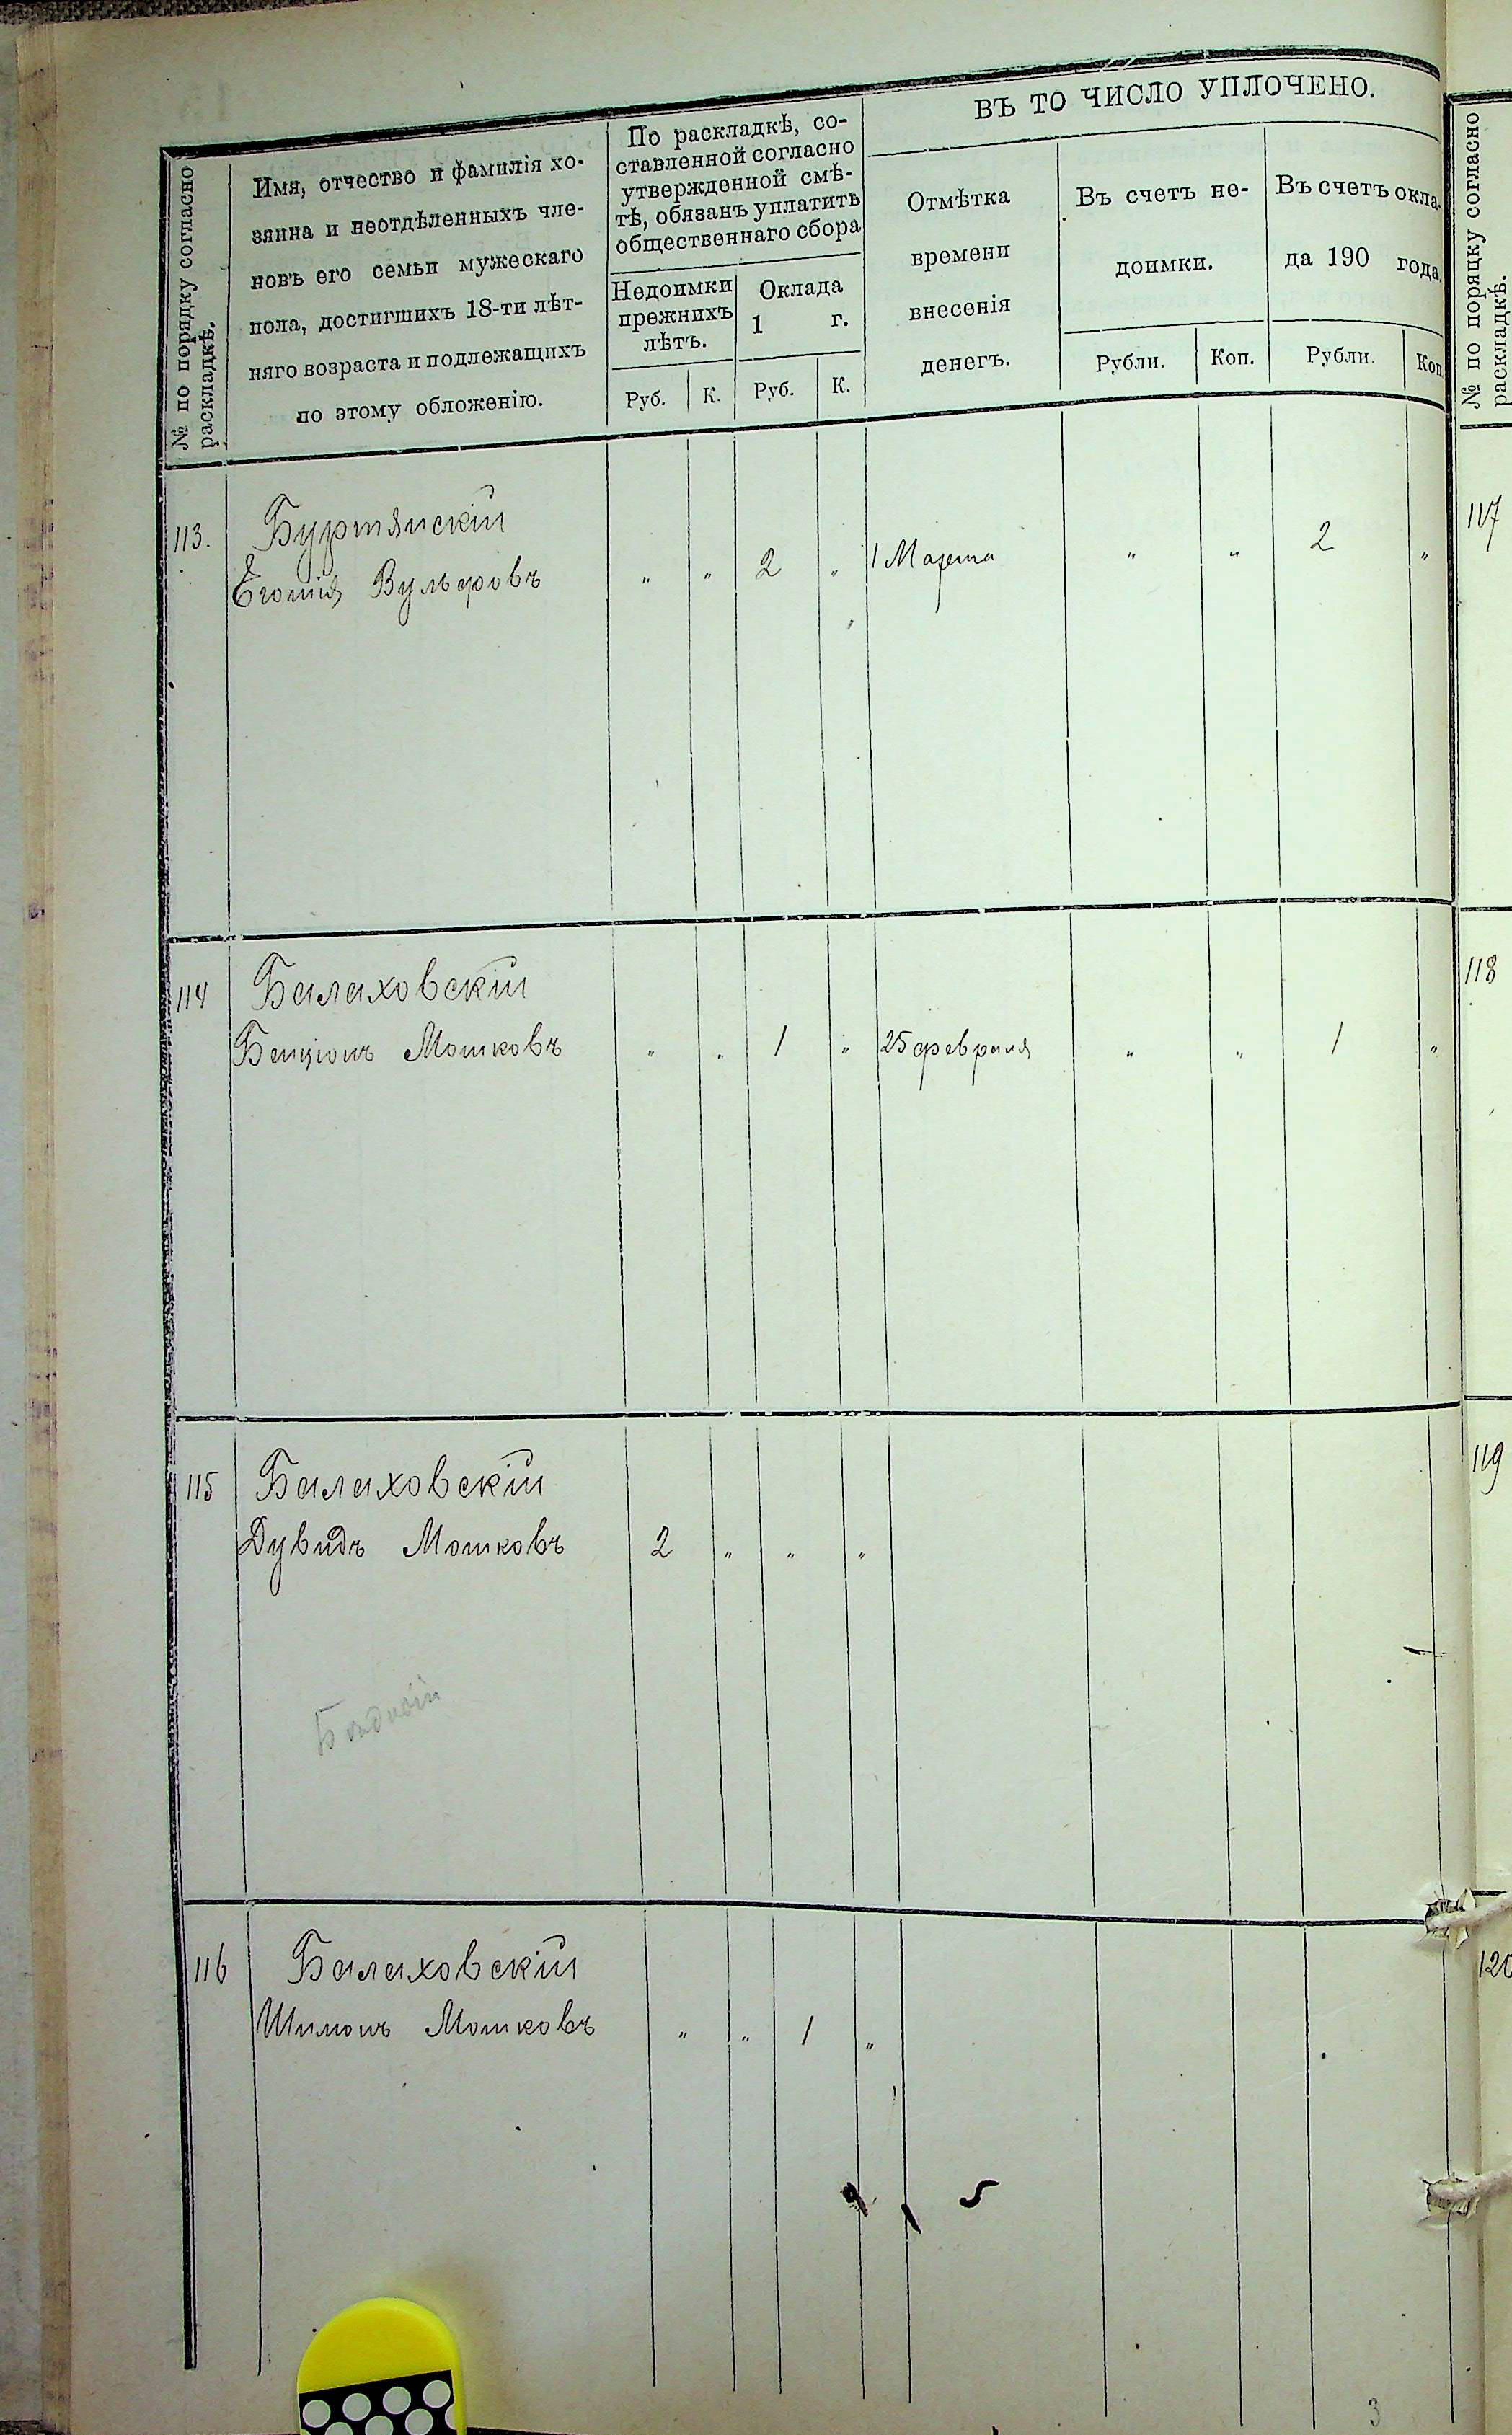 ВЪ ТО ЧИСЛО УПЛОЧЕНО.
№ по порядку согласно
раскладкѣ.
Имя, отчество и фамилія хо-
зяина и неотдѣленныхъ чле-
новъ его семьи мужескаго
пола, достигшихъ 18-ти лѣт-
няго возраста и подлежащихъ
по этому обложенію.
По раскладкѣ, со-
ставленной согласно
утвержденной смѣ-
тѣ, обязанъ уплатить
общественнаго сбора
Недоимки
прежнихъ
лѣтъ.
Оклада
1 г.
Руб. К. Руб. К.
Отмѣтка
времени
внесенія
денегъ.
Въ счетъ не-
доимки.
Рубли. Коп.
Въ счетъ окла-
да 190 года.
Рубли. Коп
№ по порядку согласно
раскладкѣ.
113. Буртянскій
Вульфовъ " " 2 " 1 Марта " " 2 "
117
114 Балаховскій
Бенціонъ Мошковъ " " 1 " 25 февраля " " 1 "
118
115 Балаховскій
Дувидъ Мошковъ 2 " " "
119
116 Балаховскій
Шимонъ Мошковъ " " 1 "
120
3